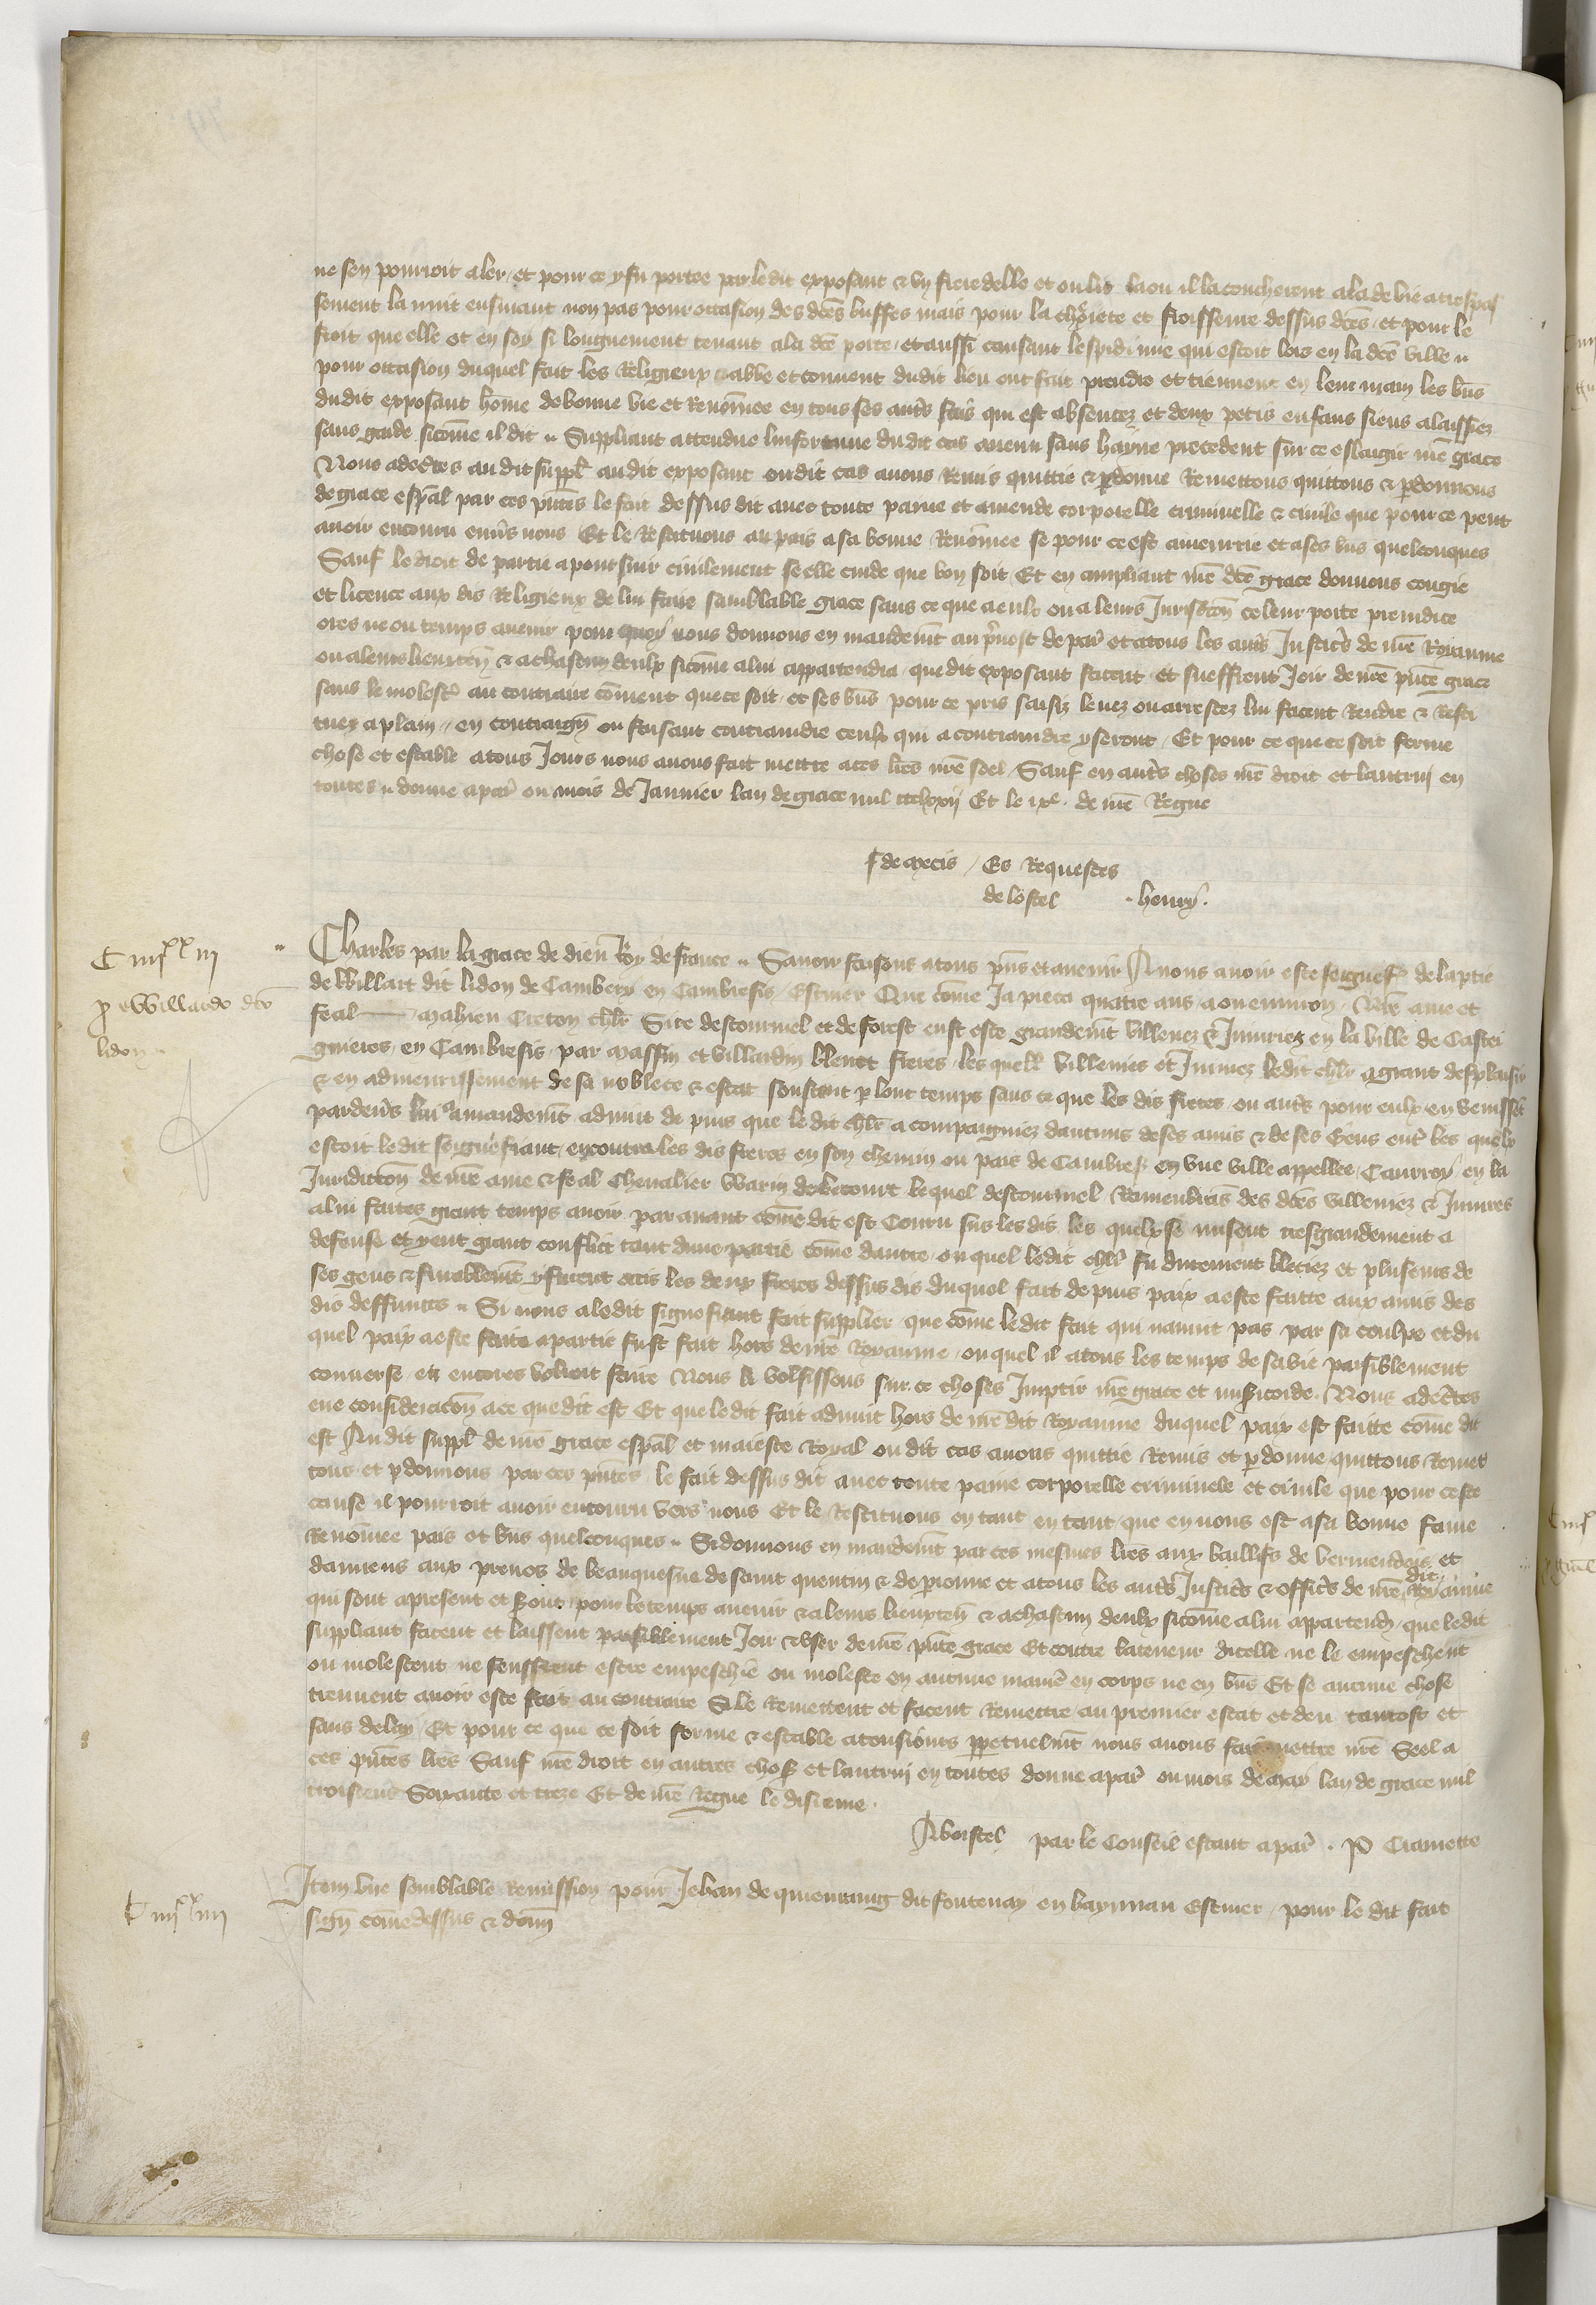 ne sen pourroit aler, et pour ce y fu portee par ledit exposant & un frere delle et ou lit la ou il la coucherent ala de vie a trespas
sement la nuit ensuiant non pas pour occasion des dces buffes mais pour la cheoiete et froisseure dessus dces, et pour le
froit que elle ot en soy si longuement tenant ala dce porte, et aussi causant lespidimie qui estoit lors en la dce ville
pour occasion duquel fait les Religieux abbe et convent dudit lieu ont fait prendre et tiennent en leur main les bns
dudit exposant home de bonne vie et Renomee en tous ses autres fais qui est absentez et deux petis enfans siens a laissiez
sans garde sicome il dit Suppliant attendue linfortune dudit cas avenu sans hayne precedent sur ce eslargir nre grace
Nous adectes audit suppl audit exposant oudit cas avons Remis quittie & pdonne Remettons quittons & pdonnons
de grace espal par ces pntes le fait dessus dit avec toute paine et amende corporelle criminelle & civile que pour ce peut
avoir encouru envs nous Et le Restituons au pais a sa bonne Renomee se pour ce est amenrie et a ses bns quelconques
Sauf le droit de partie a poursuir civilement se elle cuide que bon soit, Et en ampliant nre dce grace donnons congie
et licence aux dis Religieux de lui faire samblable grace sans ce que a eulx ou a leurs Juridicon ce leur porte preiudice
ores ne ou temps avenir pour quoy nous donnons en mandemt au pvost de par et a tous les auts Justics de nre Royaume
ou a leurs lieuxten & a chascun deulx sicome a lui appartendra que dit exposant facent et sueffrent Joir de nre pnte grace
sans le molest au contraire coment que ce soit, et ses bns pour ce pris saisiz levez ou arrestez lui facent Rendre & Resti
tuer a plain, en contraign ou faisant contraindre ceulx qui a contraindre y seront, Et pour ce que ce soit ferme
chose et estable a tous Jours nous avons fait mettre a ces lres nre seel, Sauf en auts choses nre droit et lautrui en
toutes donne a par ou mois de Janvier lan de grace mil ccclxxij Et le ixe. de nre Regne
J de mecis, Es Requestes
de lostel . henry.
C iiijxx iij
p Willardo dco
lidon
Charles par la grace de dieu Roy de france Savoir faisons a tous pns et avenir A nous avoir este segnefie de la ptie
de Willart dit lidon de Cambery en Cambresis, Escuier Que come Ja pieca quatre ans a ou environ, Nre ame et
feal Mahieu Creton chlr Sire destourmel et de forest eust este grandemt villenez & Jniuriez en la ville de Castei
gnieres, en Cambresis, par Massin et Villardin blenet freres, les quelx villenies et Jniures ledit chlr a grant desplaisir
& en admenrissement de sa noblece & estat soustint p lonc temps sans ce que les dis freres ou auts pour eulx en venissent
pardevs lui a amandemt advint depuis que le dit chlr a compaigniez daucuns de ses amis & de ses Gens entre les quelx
estoit ledit segnefiant, encontra les dis freres en son chemin ou pais de Cambresis en une ville appellee, Caurroy en la
Juridicton de nre ame & feal Chevalier Warin de becourt lequel destourmel Remembrans des dces villenies & Jniures
a lui faites grant temps avoir par avant come dit est Couru sus les dis les quelx se misent tresgrandement a
defense et y eut grant conflict tant dune partie come dautre, ou quel ledit chlr fu durement bleciez et plusieurs de
ses gens & finablemt y furent occis les deux freres dessus dis duquel fait depuis paix a este faitte aux amis des
dis deffuncts Si nous a ledit signefiant fait supplier que come ledit fait qui navint pas par sa coulpe et du
quel paix a este faite a partie fust fait hors de nre Royaume, ou quel il a tous les temps de sa vie paisiblement
converse, et encores voloit faire Nous li volsissons sur ce choses Jmptir nre grace et misericorde, Nous adectes
eue consideracon a ce que dit est Et que le dit fait advint hors de nre dit Royaume duquel paix est faitte come dit
est Audit suppl de nre grace espal et maieste Royal ou dit cas avons quittie Remis et pdonne quittons Remet
tons et pdonnons par ces pntes le fait dessus dit avec toute paine corporelle criminele et civile que pour ceste
cause il pourroit avoir encouru vers nous Et le Restituons en tant en tant que en nous est a sa bonne fame
Renomee pais et bns quelconques Si donnons en mandemt par ces mesmes lres aux baillifs de Vermendois et
damiens aux prevos de beauquesne de saint quentin & de peronne et a tous les auts Justics & offics de nre dit Royaume
qui sont a present et seront pour le temps avenir & a leurs lieuxten & a chascun deulx sicome a lui appartendra que ledit
suppliant facent et laissent paisiblement Joir & user de nre pnte grace Et contre la teneur dicelle ne le empeschent
ou molestent ne seuffrent estre empeschie ou moleste en aucune maniere en corps ne en bns Et se aucune chose
treuvent avoir este fait au contraire Si le Remettent et facent Remettre au premier estat et deu tantost et
sans delay, Et pour ce que ce soit ferme & estable a tousiours ppetuelmt nous avons fait mettre nre Seel a
ces pntes lres Sauf nre droit en autres choses et lautrui en toutes donne a par ou mois de May lan de grace mil
troiscens Soixante et treze Et de nre Regne le disieme.
Aboistel par le Conseil estant a par. P Cramette
C iiijxx iiij
Item une semblable Remission pour Jehan de dit fontenay en Escuier, pour le dit fait
sign come dessus & dam